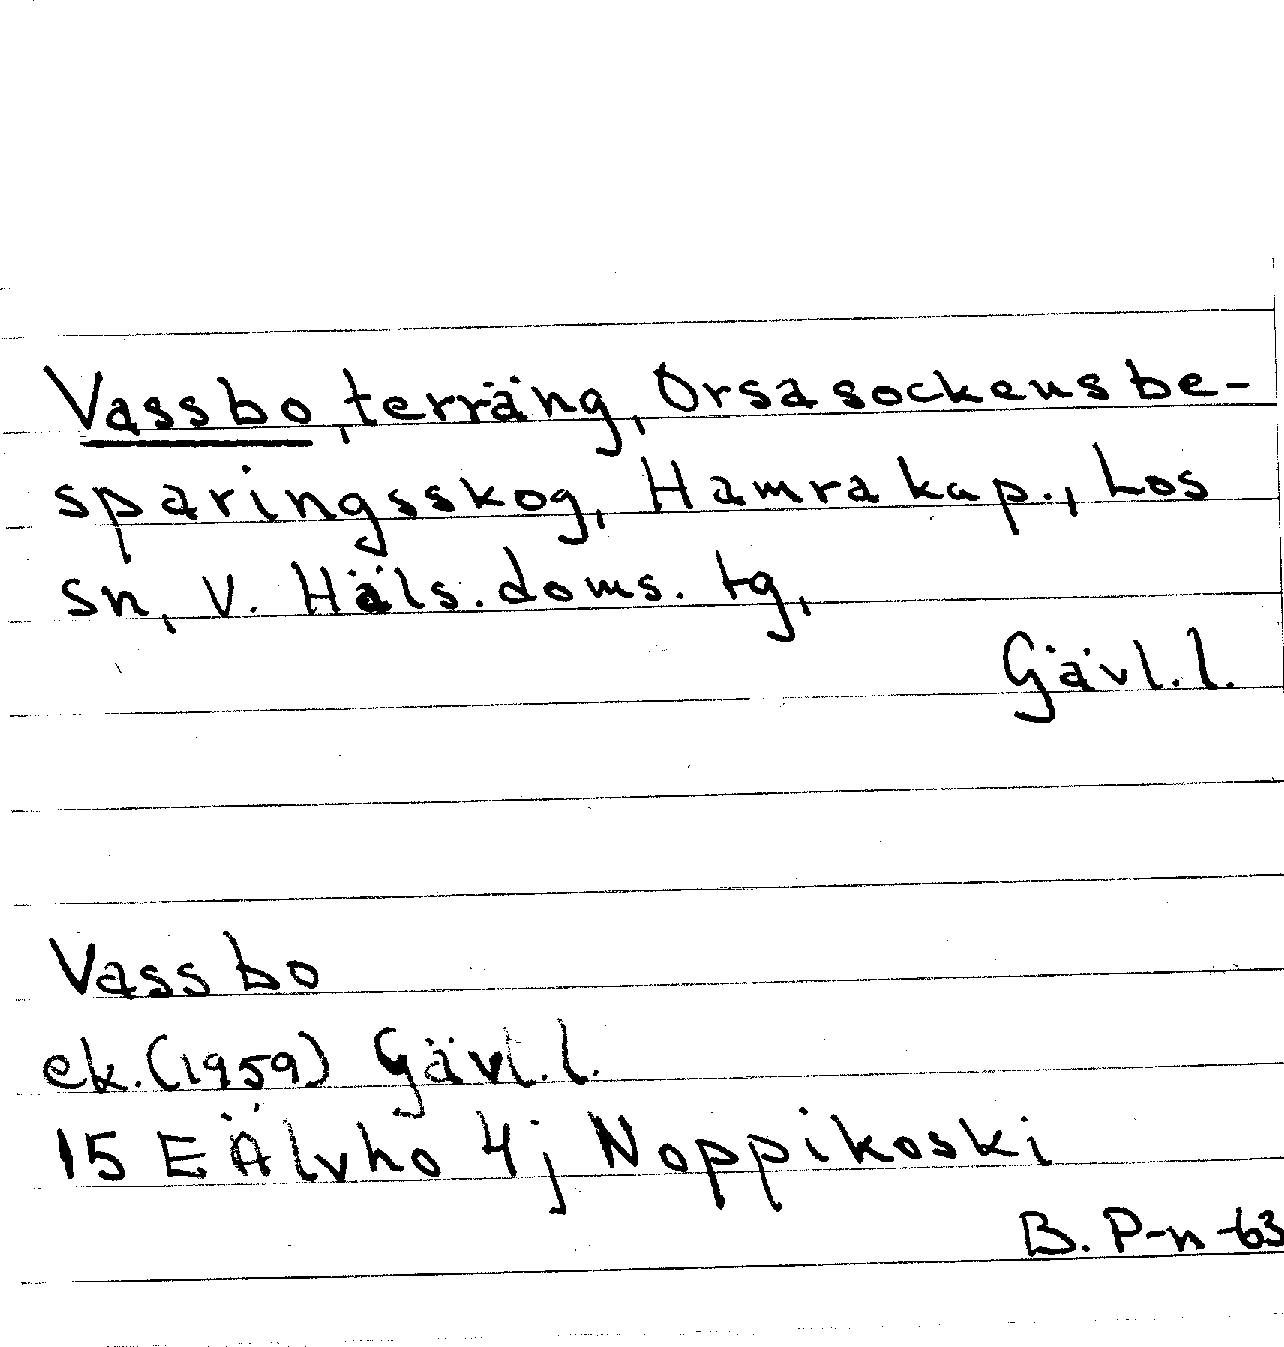 Vassbo, terräng, Orsa sockens be-
sparingsskog, Hamra kap., Los
sn, V. Häls. doms. tg,
Gävl. l.
Vassbo
ek. (1959) Gävl. l.
15 E Älvho 4j Noppikoski
B. P-n -63